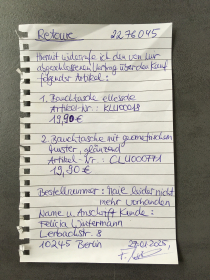 Retoure 2276045
Hiermit widerrufe ich den von mir
abgeschlossenen Vertrag über den Kauf
folgender Artikel:
1. Bauchtasche
Artikel-Nr.: KLU00018
19,90€
2. Bauchtasche mit geometrischen
Muster, glänzend
Artikel-Nr.:
19,90€
Bestellnummer: habe leider nicht
mehr vorhanden
Name u. Anschrift Kunde:
Felicia Wüstermann
Lerbachstr. 8
10245 Berlin 29.01.2025,